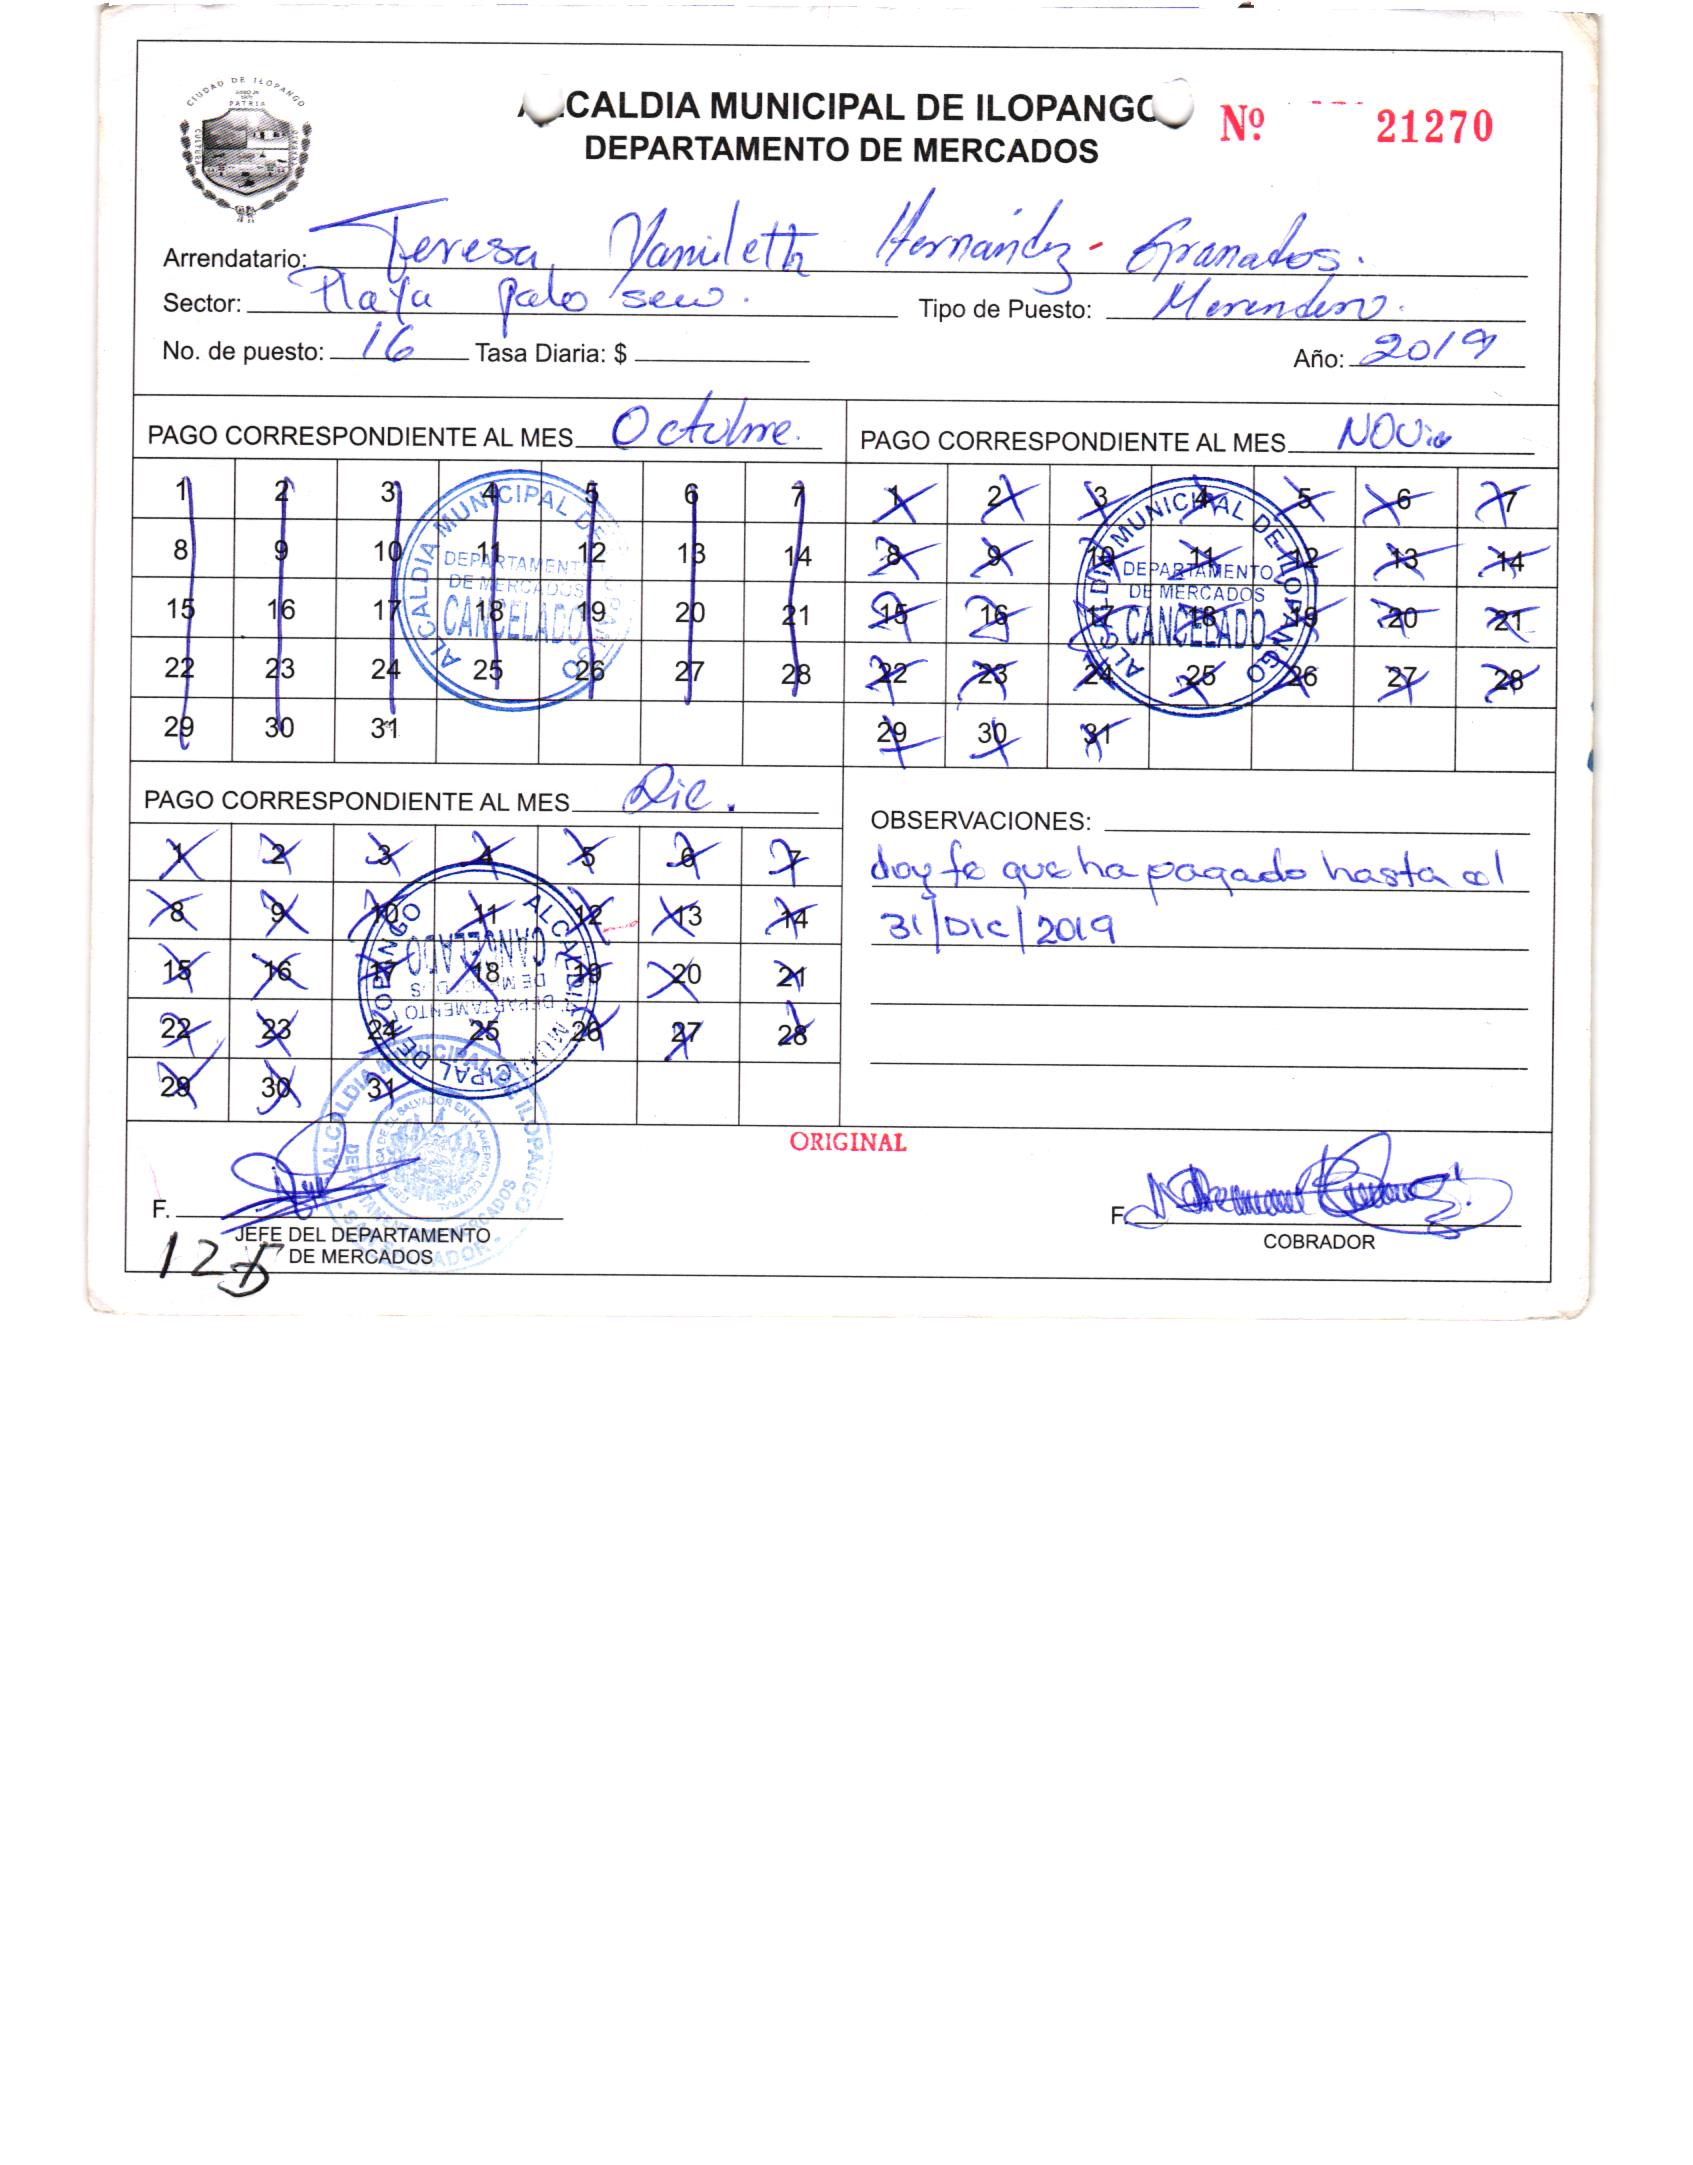 CIUDAD DE ILOPANGO
PATRIA
ALCALDIA MUNICIPAL DE ILOPANGO
DEPARTAMENTO DE MERCADOS
Nº 21270
Arrendatario: Teresa Yamileth Hernández - Granados.
Sector: Playa palo seco. Tipo de Puesto: Merendero.
No. de puesto: 16 Tasa Diaria: $ Año: 2019
PAGO CORRESPONDIENTE AL MES Octubre.
1 2 3 4 5 6 7
8 9 10 11 12 13 14
15 16 17 18 19 20 21
22 23 24 25 26 27 28
29 30 31
ALCALDIA MUNICIPAL DE ILOPANGO
DEPARTAMENTO
DE MERCADOS
CANCELADO
PAGO CORRESPONDIENTE AL MES
1 2 3 4 5 6 7
8 9 10 11 12 13 14
15 16 17 18 19 20 21
22 23 24 25 26 27 28
29 30 31
ALCALDIA MUNICIPAL DE ILOPANGO
DEPARTAMENTO
DE MERCADOS
CANCELADO
PAGO CORRESPONDIENTE AL MES Dic.
1 2 3 4 5 6 7
8 9 10 11 12 13 14
15 16 17 18 19 20 21
22 23 24 25 26 27 28
29 30 31
ALCALDIA MUNICIPAL DE ILOPANGO
DEPARTAMENTO
DE MERCADOS
CANCELADO
OBSERVACIONES:
doy fe que ha pagado hasta el
31/DIC/2019
ORIGINAL
ALCALDIA MUNICIPAL DE ILOPANGO
DEPARTAMENTO DE MERCADOS
SAN SALVADOR
F.
JEFE DEL DEPARTAMENTO
DE MERCADOS
F.
COBRADOR